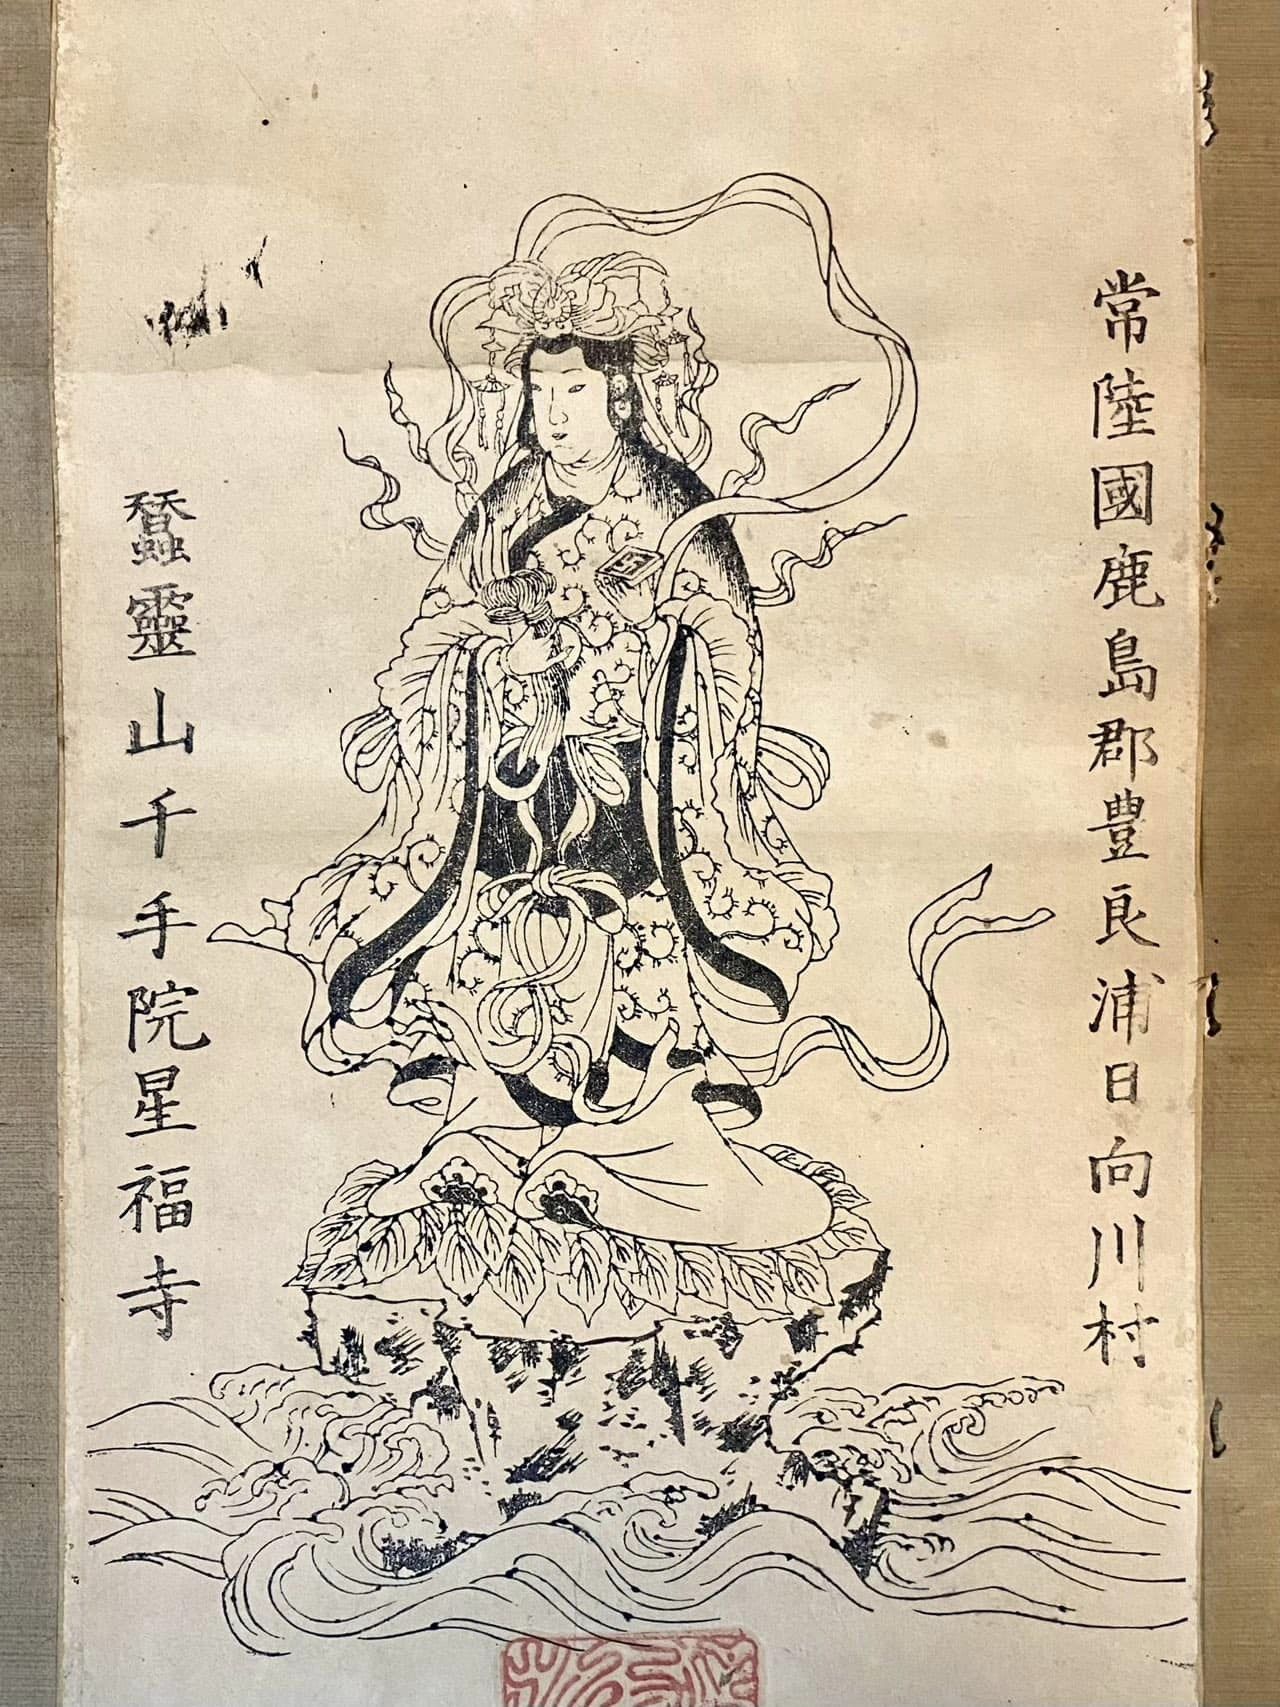 常陸國鹿島郡豊良浦日向川村
蠶靈山千手院星福寺